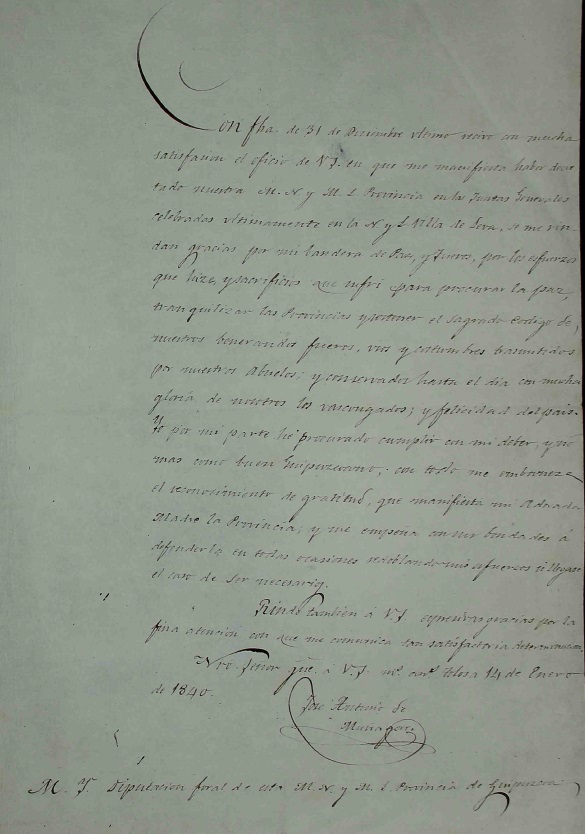 Con fha. de 31 de Diciembre ultimo recivi con mucha
satisfacion el oficio de V.J. en que me manifiesta haber decre
tado nuestra M. N. y M. L. Provincia en las Juntas Generales
celebradas ultimamente en la N. y L. Villa de Deva, se me rin
dan gracias por mi bandera de Paz, y Fueros, por los esfuerzos
que hize, y sacrificios que sufri para procurar la paz,
tranquilizar las Provincias y sostener el Sagrado Codigo de
nuestros benerandos fueros, usos y costumbres trasmitidos
por nuestros Abuelos; y conservados hasta el dia con mucha
gloria de nosotros los vascongados; y felicidad del pais.
Yo por mi parte hé procurado cumplir con mi deber, y no
mas como buen Guipuzcoano; con todo me embaraza
el reconocimiento de gratitud, que manifiesta mi Adorada
Madre la Provincia; y me empeña con sus bondades á
defenderla en todas ocasiones redoblando mis esfuerzos si llegare
el caso de ser necesario.
Rindo tambien á V.J. espresivas gracias por la
fina atencion con que me comunica tan satisfactoria determinacion.
Nro Señor gue. á V.J. ms. ans. Tolosa 14 de Enero
de 1840.
José Antonio de
Muñagorri
M. Y. Diputacion foral de esta M. N. y M. L. Provincia de Guipuzcoa